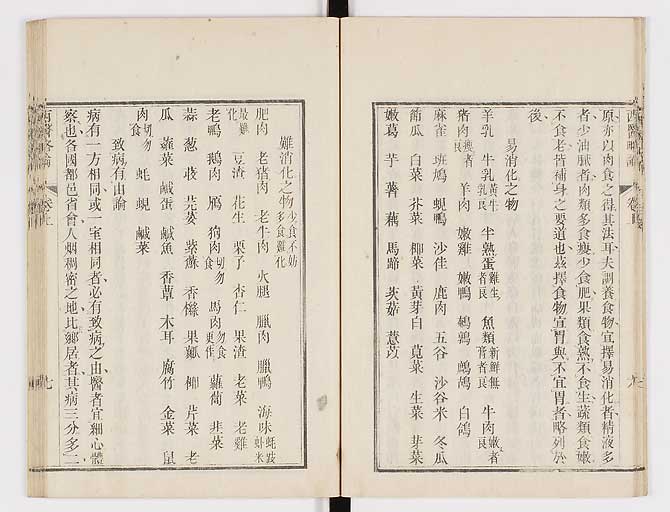 原亦以肉食之得其法耳夫調養食物宜擇易消化者精液多
者少油膩者肉類多食瘦少食肥果類食熟不食生蔬類食嫩
不食老皆補身之要道也茲擇食物宜胃與不宜胃者略列於
後
易消化之物
羊乳 牛乳黃牛乳良 半熟蛋雞生者良 魚類新鮮無膏者良 牛肉嫩者良
猪肉瘦者良 羊肉 嫩雞 嫩鴨 鵪鶉 鷓鴣 白鴿
麻雀 班鳩 蜆鴨 沙隹 鹿肉 五谷 沙谷米 冬瓜
節瓜 白菜 芥菜 椰菜 黃芽白 莧菜 生菜 芽菜
嫩葛 芋 薯 藕 馬蹄 茨菇 薏苡
西醫略論 卷上
難消化之物少食不妨多食難化
肥肉 老猪肉 老牛肉 火腿 臘肉 臘鴨 海味蚝豉蝦米
最難化 豆渣 花生 栗子 杏仁 果渣 老菜 老雞
老鴨 鵝肉 鴈 狗肉切勿食 馬肉勿食更佳 蘿蔔 韭菜
蒜 葱 豉 芫荽 紫蘇 香櫞 果 柳 芹菜 老
瓜 蘿菜 鹹蛋 鹹魚 香蕈 木耳 腐竹 金菜 鼠
肉切勿食 蚝 蜆 鹹菜
致病有由論
病有一方相同或一室相同者必有致病之由醫者宜細心體
察也各國都邑省會人烟稠密之地比鄉居者其病三分多二
西醫略論 卷上 七